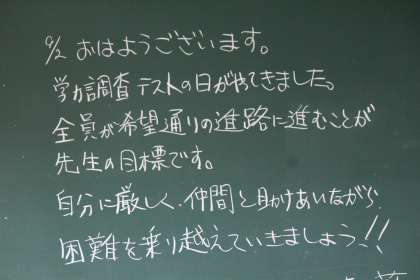 9/2 おはようございます。
学力調査テストの日がやってきました。
全員が希望通りの進路に進むことが
先生の目標です。
自分に厳しく、仲間と助けあいながら
困難を乗り越えていきましょう!!